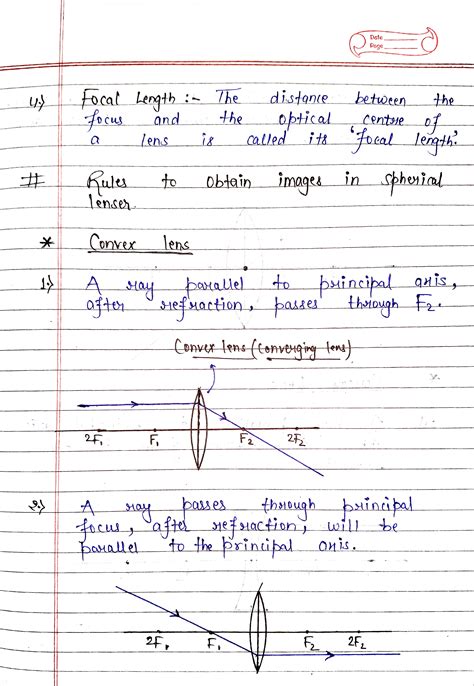 Date
Page
4.) Focal Length :- The distance between the
focus and the optical centre of
a lens is called its 'focal length'.
# Rules to obtain images in spherical
lenser.
* Convex lens
1.) A ray parallel to principal axis,
after refraction, passes through F2.
Convex lens (Converging lens)
2F1 F1 F2 2F2
2.) A ray passes through principal
focus, after refraction, will be
parallel to the principal axis.
2F1 F1 F2 2F2